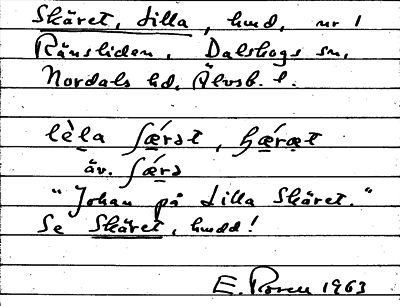 Skäret, Lilla, hmd, nr 1
Ränsliden, Dalskogs sn,
Nordals hd, Älvsb. l.
lèla ʃǽrət, ʃǽræt
äv. ʃǽrə
"Johan på Lilla Skäret."
Se Skäret, hmdd!
E. 1963